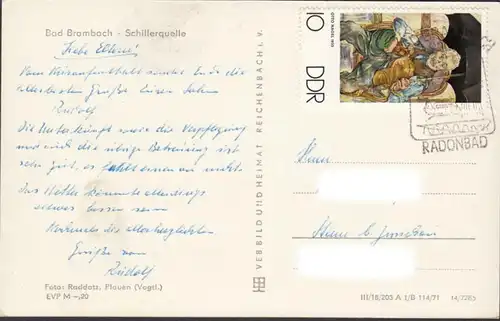 Bad Brambach - Schillerquelle
Liebe Eltern!
Vom Kuraufenthalt sende Euch die
allerbesten Grüße Euer Sohn
Rudolf
Die Unterkunft sowie die Verpflegung
und auch die übrige Betreuung ist
sehr gut, es fehlt einem an nichts.
das Wetter könnte allerdings
etwas besser sein
Nochmals die allerherzlichsten
Grüße von
Rudolf
Foto: Raddatz, Plauen (Vogtl.)
EVP M -,20
VEB BILD UND HEIMAT REICHENBACH i. V.
10 DDR
OTTO NAGEL
RADONBAD
III/18/203 A 1/B 114/71
14/7285